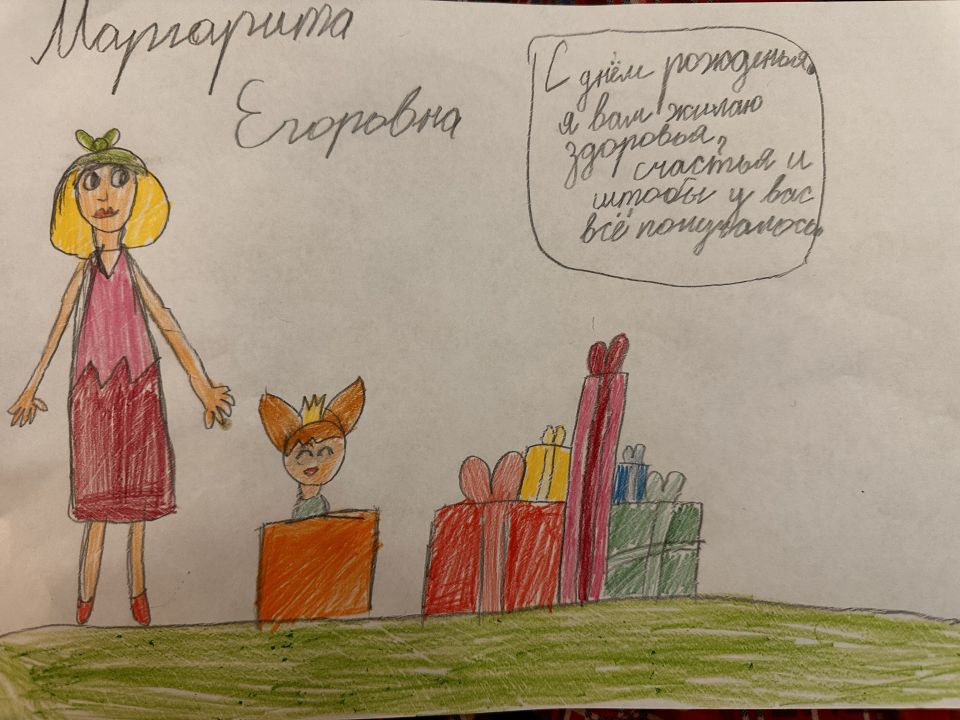 Маргарита
Егоровна
С днём рожденья,
я вам жилаю
здоровья,
счастья и
штобы у вас
всё получалось